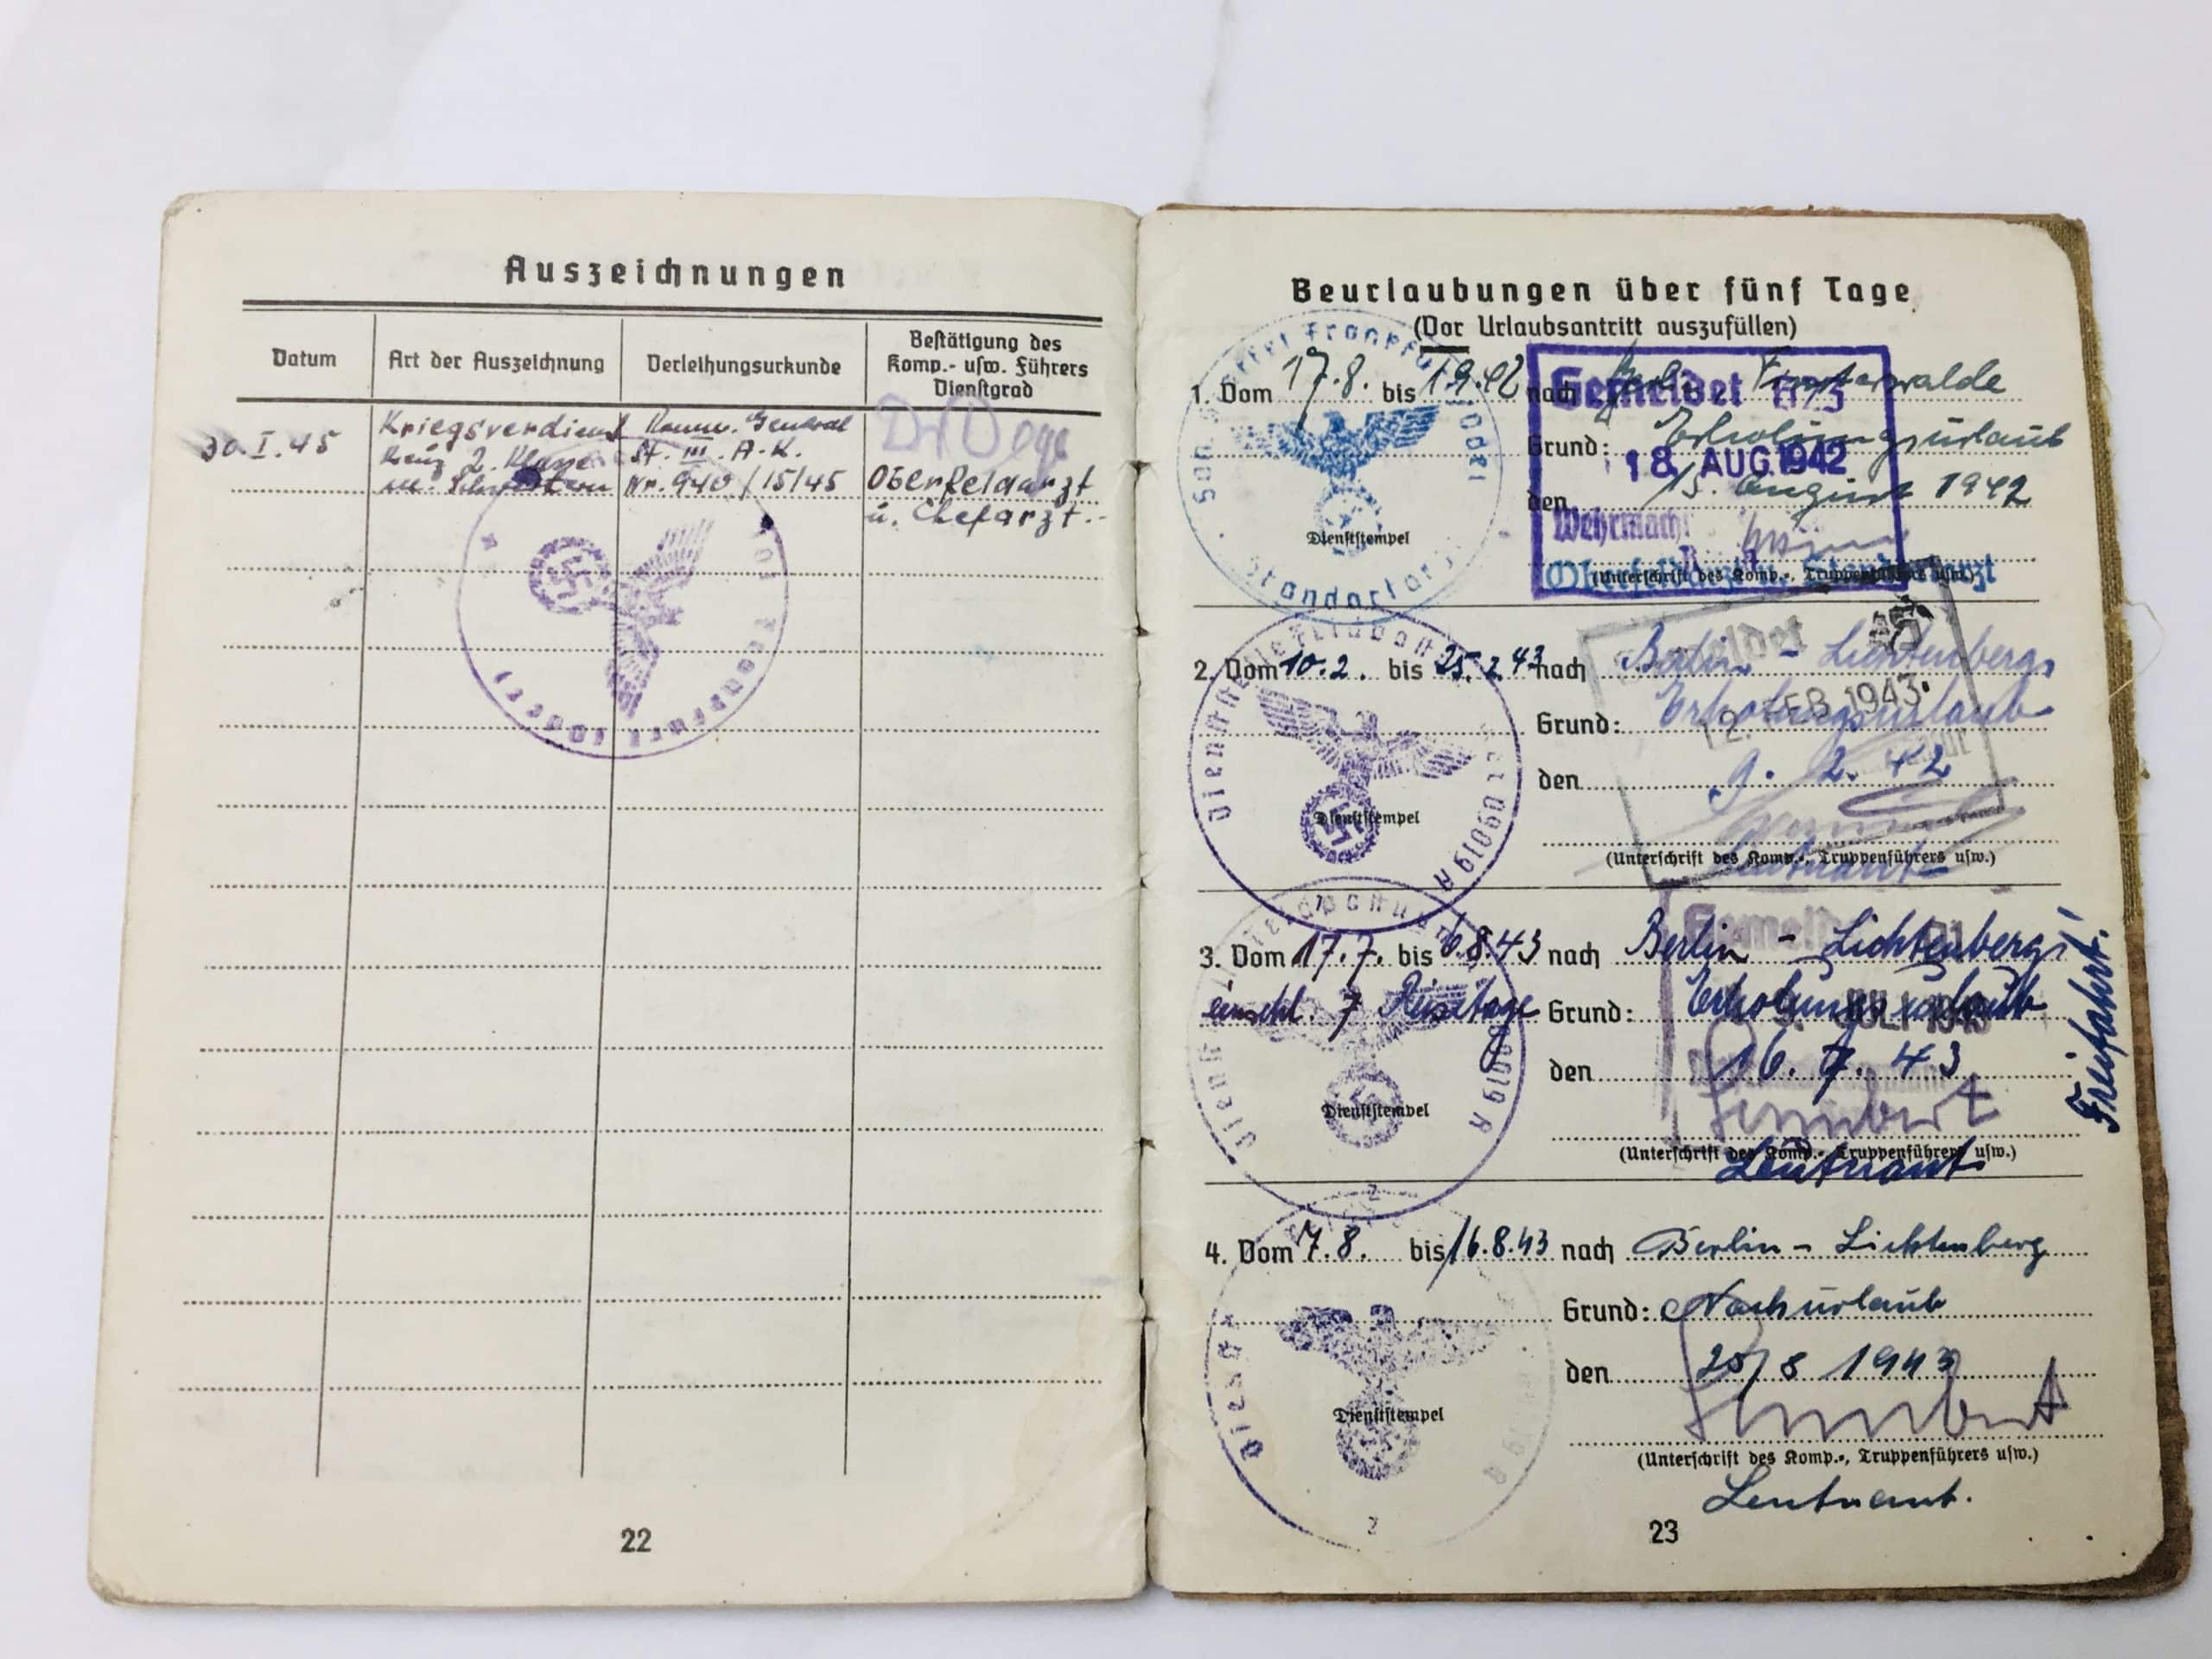 Auszeichnungen
Datum
Art der Auszeichnung
Verleihungsurkunde
Bestätigung des
Komp.- usw. Führers
Dienstgrad
30.I.45
Kriegsverdienst
Kreuz 2. Klasse
m. Schwertern
Komm. General
St. III. A.K.
Nr. 940/15/45
Oberfeldarzt
u. Chefarzt.-
22
Beurlaubungen über fünf Tage
(Vor Urlaubsantritt auszufüllen)
1. Vom 17.8. bis 1.9.42 nach Berlin Finsterwalde
Gemeldet
Grund: Erholungsurlaub
18. AUG. 1942
den 15. August 1942
Wehrmacht
Dienststempel
(Unterschrift des Komp.-, Truppenführers usw.)
Oberfeldarzt u. Standortarzt
Standortarzt
2. Vom 10.2. bis 25.2.43 nach Berlin - Lichtenberg
Gemeldet
Grund: Erholungsurlaub
12. FEB. 1943
den 9. 2. 42
Dienststempel
(Unterschrift des Komp.-, Truppenführers usw.)
Leutnant
3. Vom 17.7. bis 6.8.43 nach Berlin - Lichtenberg
Gemeldet
einschl. 7 Reisetage Grund: Erholungsurlaub
JULI 1943
den 16. 7. 43
Dienststempel
(Unterschrift des Komp.-, Truppenführers usw.)
Leutnant
Freifahrt!
4. Vom 7.8. bis 16.8.43 nach Berlin - Lichtenberg
Grund: Nachurlaub
den 20/8 1943
Dienststempel
(Unterschrift des Komp.-, Truppenführers usw.)
Leutnant.
23